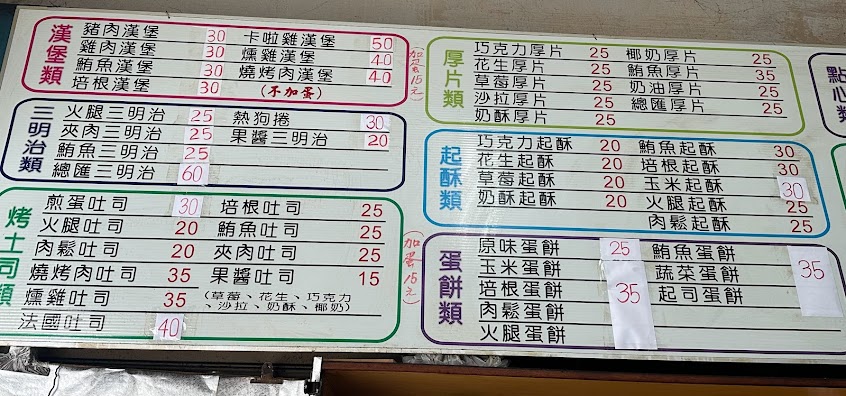 漢堡類
豬肉漢堡 30 卡啦雞漢堡 50
雞肉漢堡 30 燻雞漢堡 40
鮪魚漢堡 30 燒烤肉漢堡 40
培根漢堡 30 (不加蛋)
三明治類
火腿三明治 25 熱狗捲 30
夾肉三明治 25 果醬三明治 20
鮪魚三明治 25
總匯三明治 60
烤土司類
煎蛋吐司 30 培根吐司 25
火腿吐司 20 鮪魚吐司 25
肉鬆吐司 20 夾肉吐司 25
燒烤肉吐司 35 果醬吐司 15
燻雞吐司 35 (草莓、花生、巧克力
、沙拉、奶酥、椰奶)
法國吐司 40
加蛋15元
厚片類
巧克力厚片 25 椰奶厚片 25
花生厚片 25 鮪魚厚片 35
草莓厚片 25 奶油厚片 25
沙拉厚片 25 總匯厚片 25
奶酥厚片 25
起酥類
巧克力起酥 20 鮪魚起酥 30
花生起酥 20 培根起酥 30
草莓起酥 20 玉米起酥 30
奶酥起酥 20 火腿起酥 25
肉鬆起酥 25
蛋餅類
原味蛋餅 25 鮪魚蛋餅
玉米蛋餅 蔬菜蛋餅 35
培根蛋餅 35 起司蛋餅
肉鬆蛋餅
火腿蛋餅
點心類